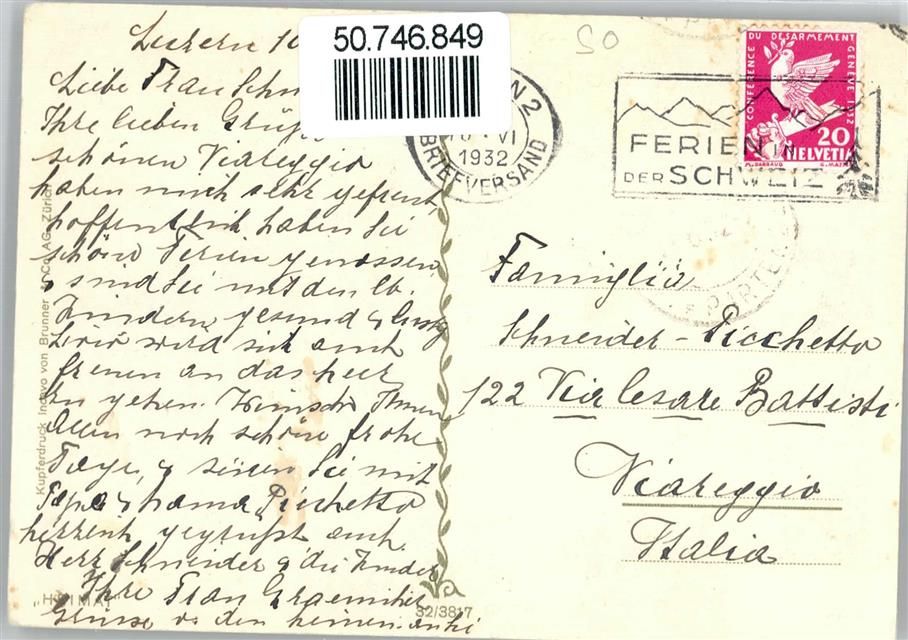 Luzern 10
50.746.849
Liebe Frau Schn
Ihre lieben Grüße
schönen Viareggio
haben mich sehr gefreut,
hoffentlich haben Sie
schöne Ferien genossen,
& sind Sie mit den lb.
Kindern gesund &
wird sich auch
freuen an das
zu gehen. Wünsche Ihnen
Allen noch schöne frohe
Tage, & seien Sie mit
Papa & Mama Picchetto
herzlich gegrüßt auch
Herr Schneider & die Kinder
Ihre Frau
Grüsse
Kupferdruck von Brunner & Co. AG. Zürich
„HEIMAT"
32/3817
N 2
VI
1932
BRIEFVERSAND
FERIEN IN
DER SCHWEIZ
CONFERENCE DU DESARMEMENT GENEVE 1932
20
HELVETIA
PORTEL
SO
Famiglia
Schneider - Picchetto
122 Via Cesare Battisti
Viareggio
Italia